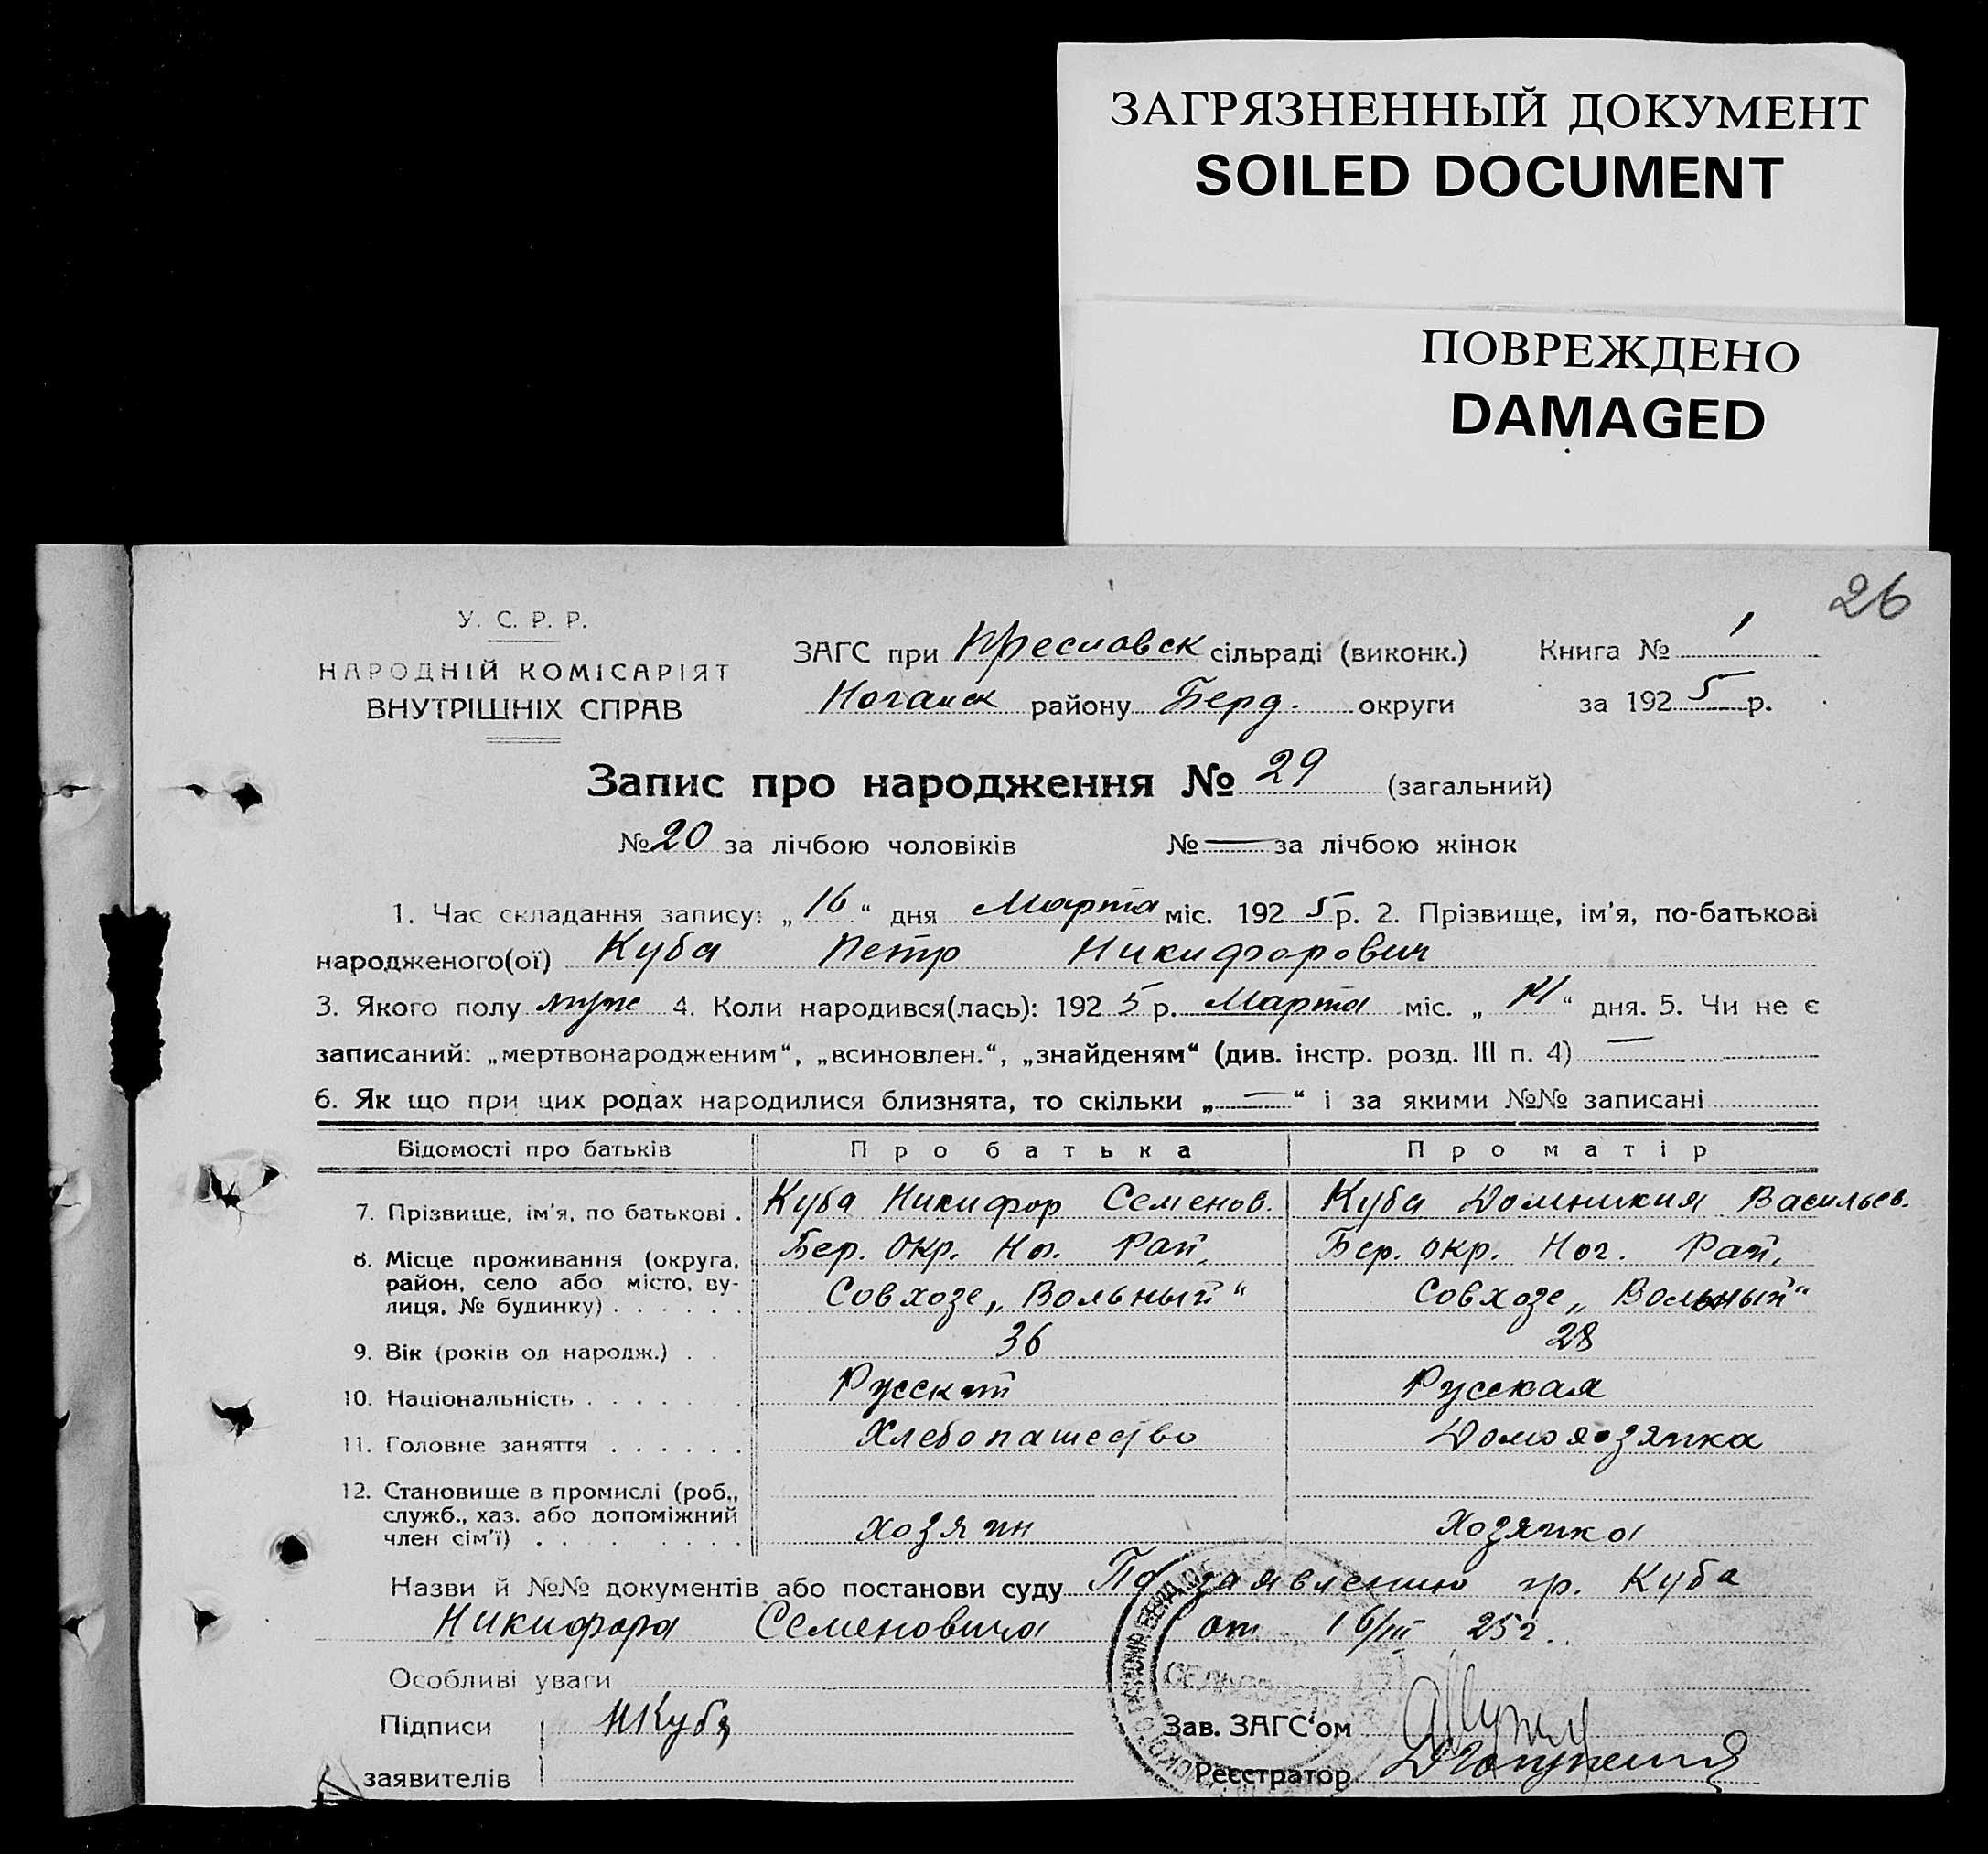 ЗАГРЯЗНЕННЫЙ ДОКУМЕНТ
SOILED DOCUMENT
ПОВРЕЖДЕНО
DAMAGED
26
У. С. Р. Р.
НАРОДНІЙ КОМІСАРІЯТ
ВНУТРІШНІХ СПРАВ
ЗАГС при Преславск сільраді (виконк.) Книга № 1
Ногайск району Берд. округи за 1925 р.
Запис про народження № 29 (загальний)
№ 20 за лічбою чоловіків № — за лічбою жінок
1. Час складання запису: „16“ дня Марта міс. 1925 р. 2. Прізвище, ім'я, по-батькові
народженого(ої) Куба Петр Никифорович
3. Якого полу муж 4. Коли народився(лась): 1925 р. Марта міс. „ “ дня. 5. Чи не є
записаний: „мертвонародженим“, „всиновлен.“, „знайденям“ (див. інстр. розд. III п. 4) —
6. Як що при цих родах народилися близнята, то скільки „—“ і за якими №№ записані
Відомості про батьків Про батька Про матір
7. Прізвище, ім'я, по батькові . Куба Никифор Семенов. Куба Домникия Васильев.
8. Місце проживання (округа, район, село або місто, вулиця, № будинку) . . . . . .
Бер. Окр. Ног. Рай, Бер. окр. Ног. Рай,
Совхозе „Вольный“ Совхозе „Вольный“
9. Вік (років од народж.) . . 36 28
10. Національність . . . . . . . Русский Русская
11. Головне заняття . . . . . . Хлебопашество Домохозяйка
12. Становище в промислі (роб., служб., хаз. або допоміжний член сім'ї) . . . . . . . .
хозяин хозяйка
Назви й №№ документів або постанови суду По заявлению гр. Куба
Никифора Семеновича от 16/III 25г.
Особливі уваги
Підписи НКуба Зав. ЗАГС'ом
заявителів Реєстратор